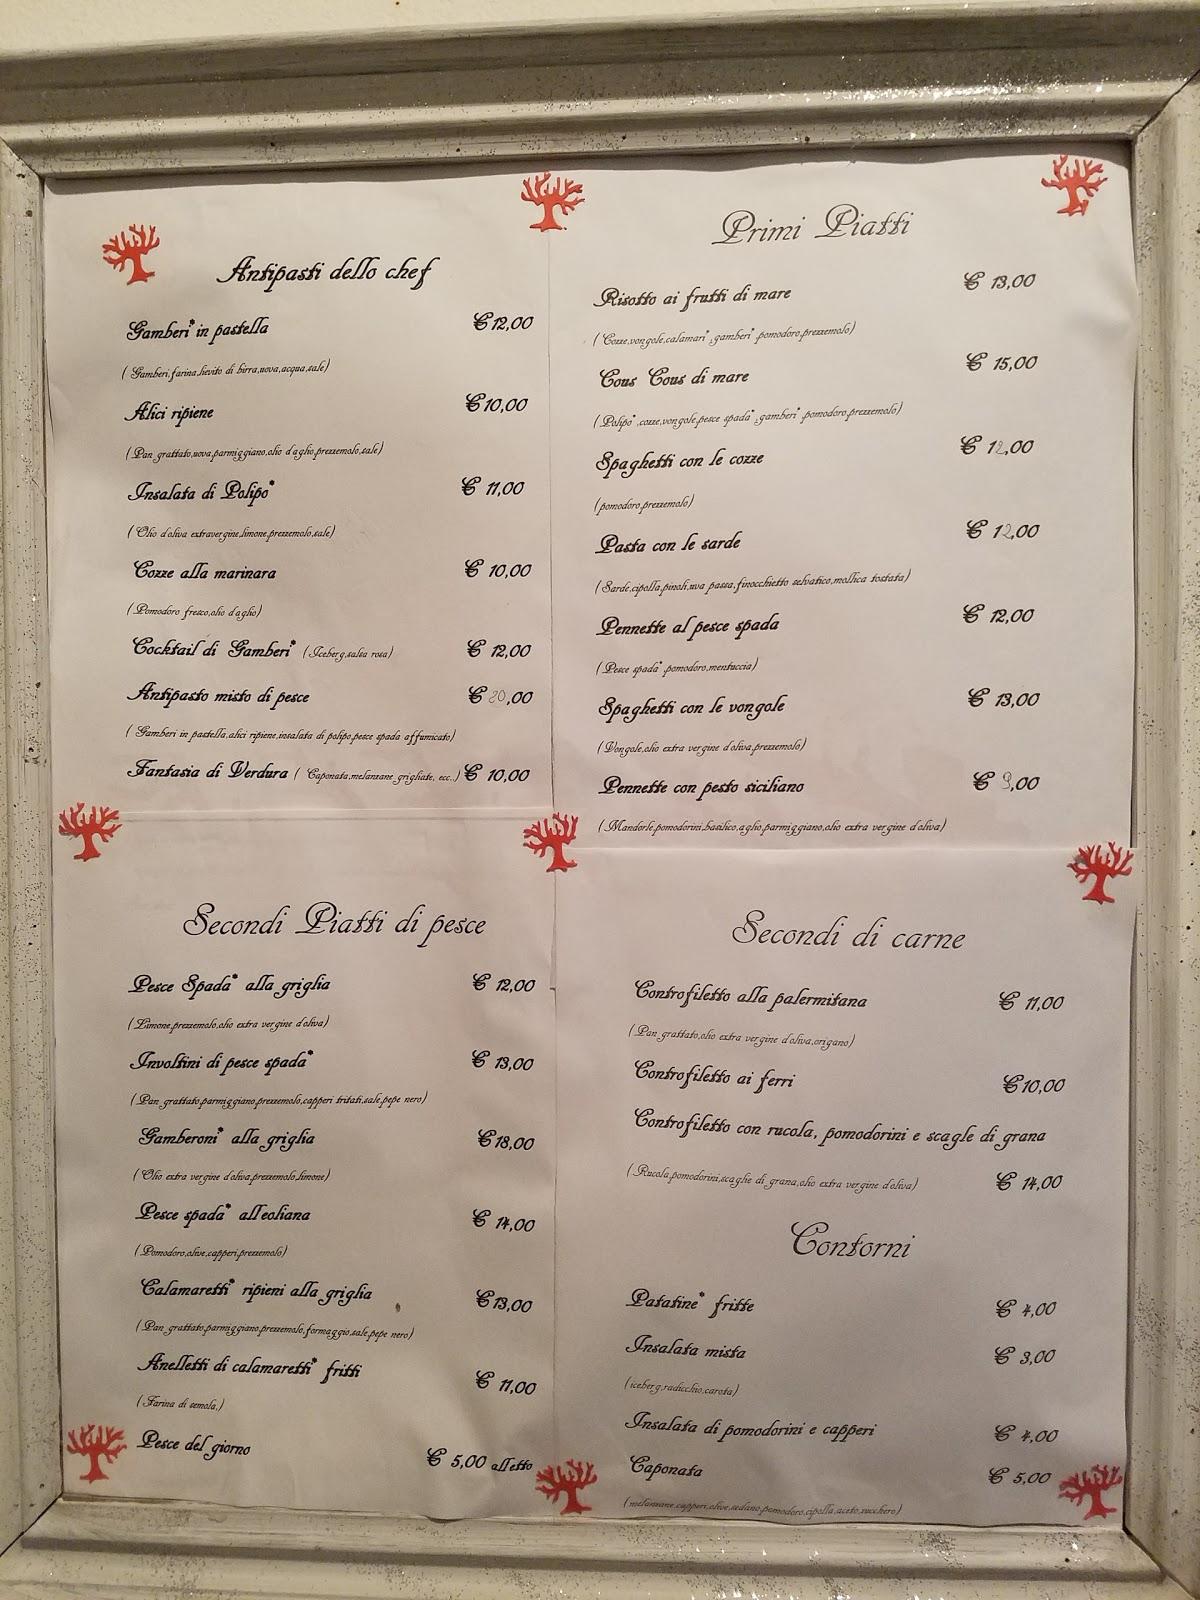 Antipasti dello chef
Gamberi* in pastella € 12,00
(Gamberi,farina,lievito di birra,uova,acqua,sale)
Alici ripiene € 10,00
(Pan grattato,uova,parmiggiano,olio d'aglio,prezzemolo,sale)
Insalata di Polipo* € 11,00
(Olio d'oliva extravergine,limone,prezzemolo,sale)
Cozze alla marinara € 10,00
(Pomodoro fresco,olio d'aglio)
Cocktail di Gamberi* (Iceberg,salsa rosa) € 12,00
Antipasto misto di pesce € 20,00
(Gamberi in pastella,alici ripiene,insalata di polipo,pesce spada affumicato)
Fantasia di Verdura ( Caponata,melanzane grigliate, ecc..) € 10,00
Primi Piatti
Risotto ai frutti di mare € 13,00
(Cozze,vongole,calamari*,gamberi*,pomodoro,prezzemolo)
Cous Cous di mare € 15,00
(Polipo*,cozze,vongole,pesce spada*,gamberi*,pomodoro,prezzemolo)
Spaghetti con le cozze € 12,00
(pomodoro,prezzemolo)
Pasta con le sarde € 12,00
(Sarde,cipolla,pinoli,uva passa,finocchietto selvatico,mollica tostata)
Pennette al pesce spada € 12,00
(Pesce spada*,pomodoro,mentuccia)
Spaghetti con le vongole € 13,00
(Vongole,olio extra vergine d'oliva,prezzemolo)
Pennette con pesto siciliano € 9,00
(Mandorle,pomodorini,basilico,aglio,parmiggiano,olio extra vergine d'oliva)
Secondi Piatti di pesce
Pesce Spada* alla griglia € 12,00
(Limone,prezzemolo,olio extra vergine d'oliva)
Involtini di pesce spada* € 13,00
(Pan grattato,parmiggiano,prezzemolo,capperi tritati,sale,pepe nero)
Gamberoni* alla griglia € 18,00
(Olio extra vergine d'oliva,prezzemolo,limone)
Pesce spada* all'eoliana € 14,00
(Pomodoro,olive,capperi,prezzemolo)
Calamaretti* ripieni alla griglia € 13,00
(Pan grattato,parmiggiano,prezzemolo,formaggio,sale,pepe nero)
Anelletti di calamaretti* fritti € 11,00
(Farina di semola,)
Pesce del giorno € 5,00 all'etto
Secondi di carne
Controfiletto alla palermitana € 11,00
(Pan grattato,olio extra vergine d'oliva,origano)
Controfiletto ai ferri € 10,00
Controfiletto con rucola, pomodorini e scagle di grana
(Rucola,pomodorini,scaglie di grana,olio extra vergine d'oliva) € 14,00
Contorni
Patatine* fritte € 4,00
Insalata mista € 3,00
(iceberg,radicchio,carota)
Insalata di pomodorini e capperi € 4,00
Caponata € 5,00
(melanzane,capperi,olive,sedano,pomodoro,cipolla,aceto,zucchero)